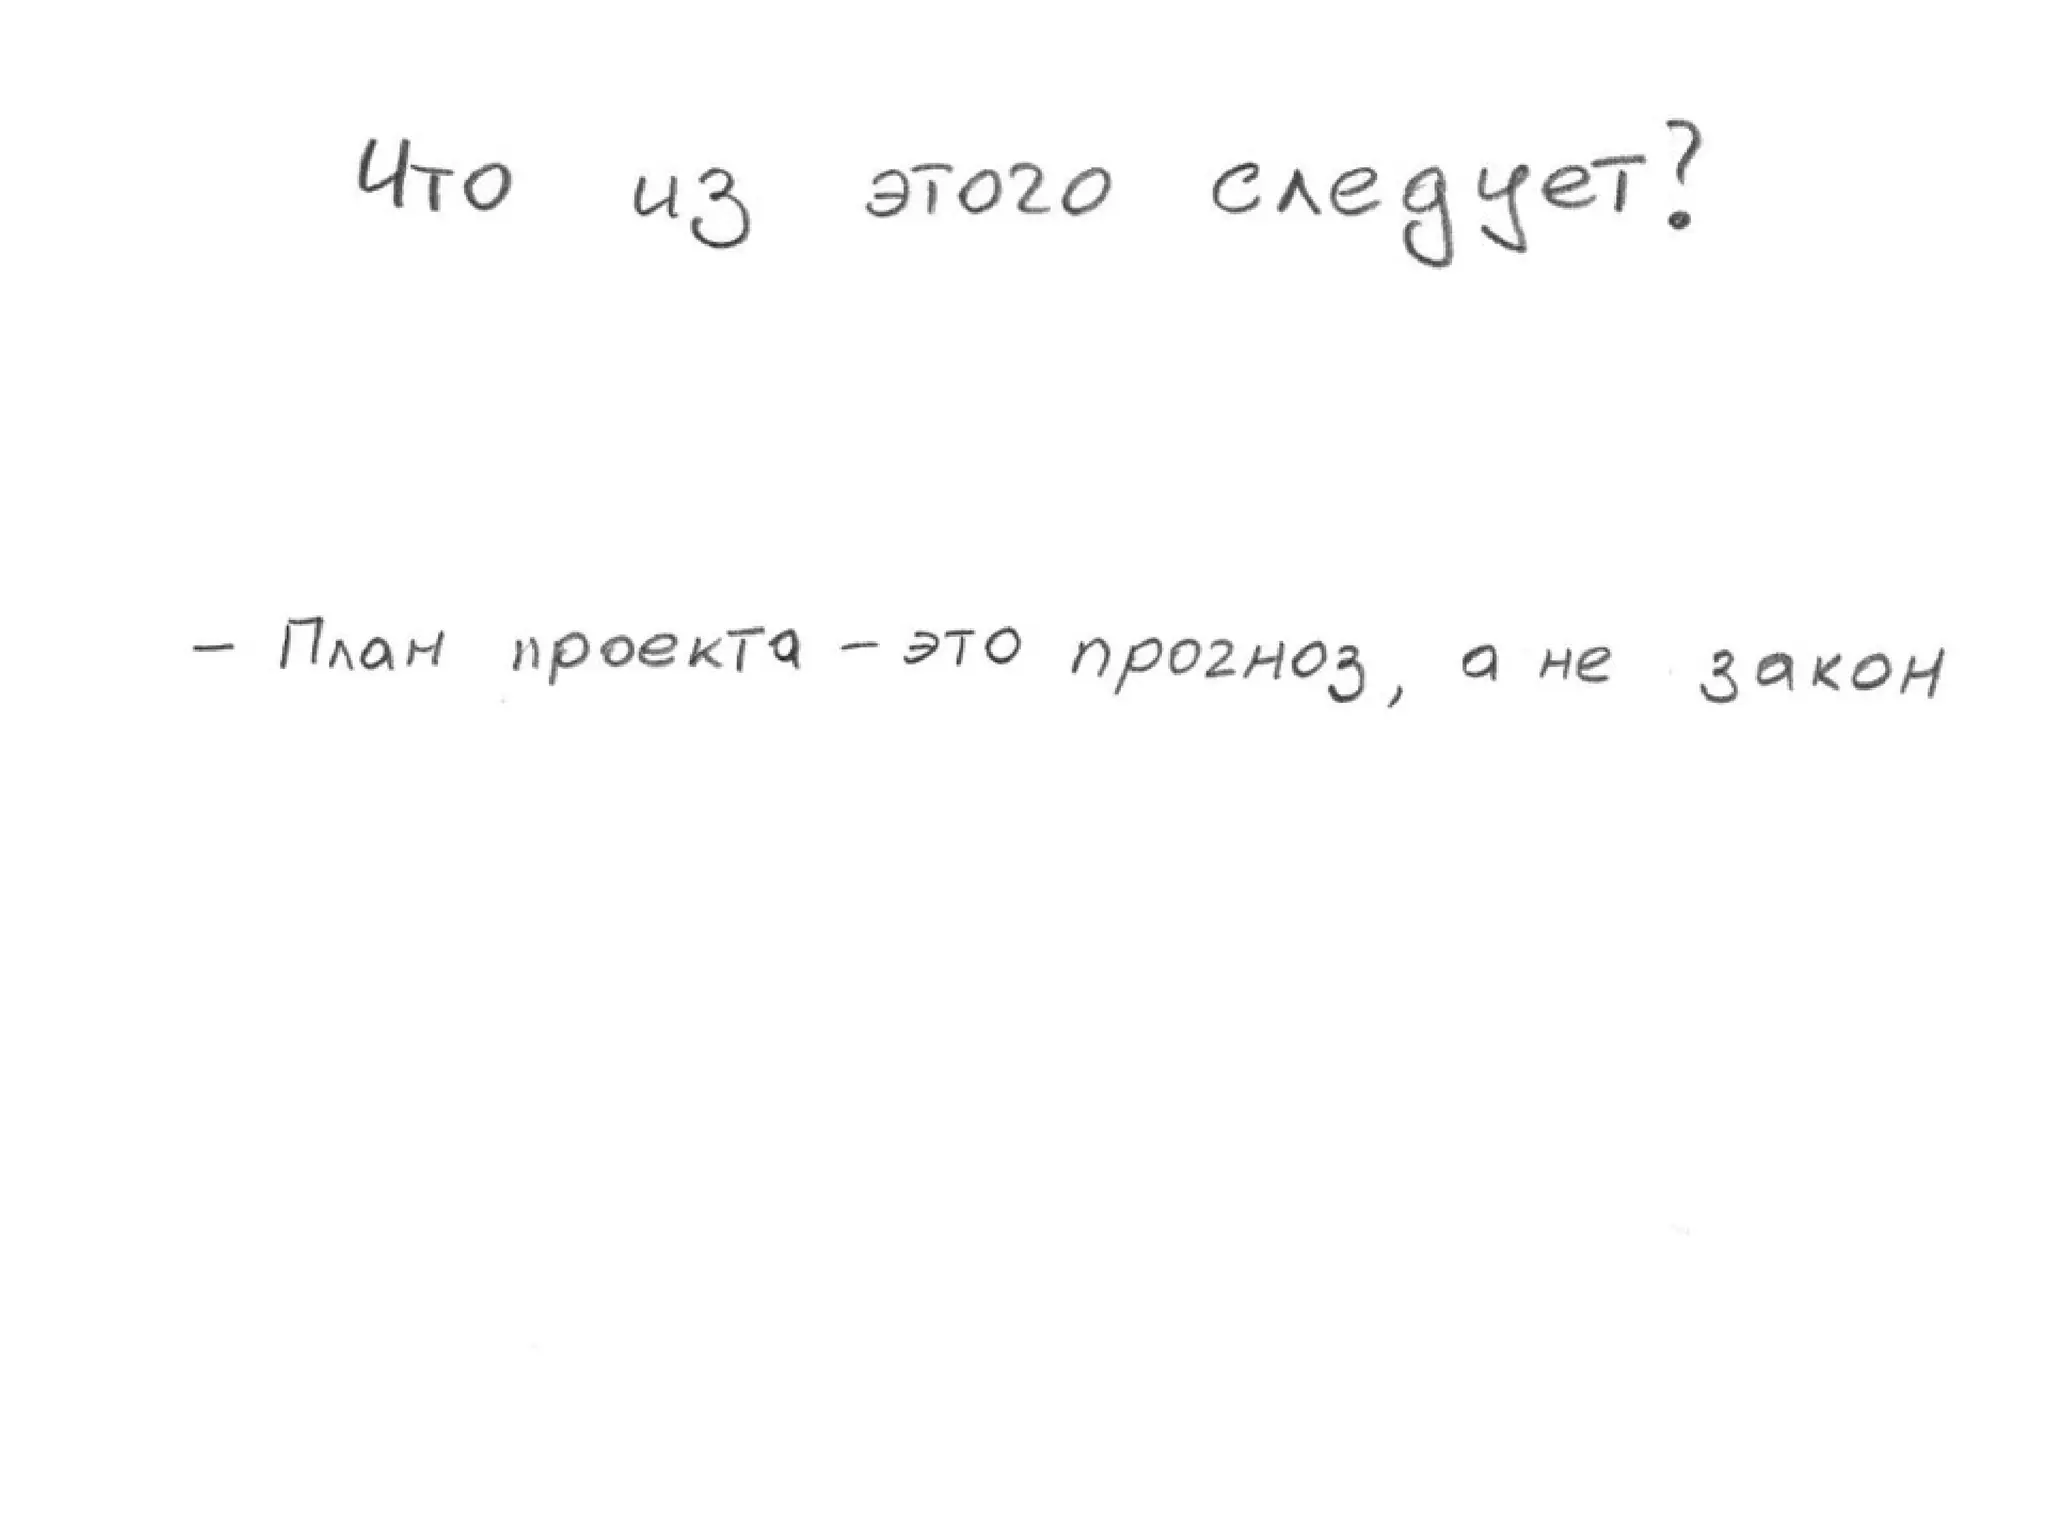 Что из этого следует?
- План проекта - это прогноз, а не закон